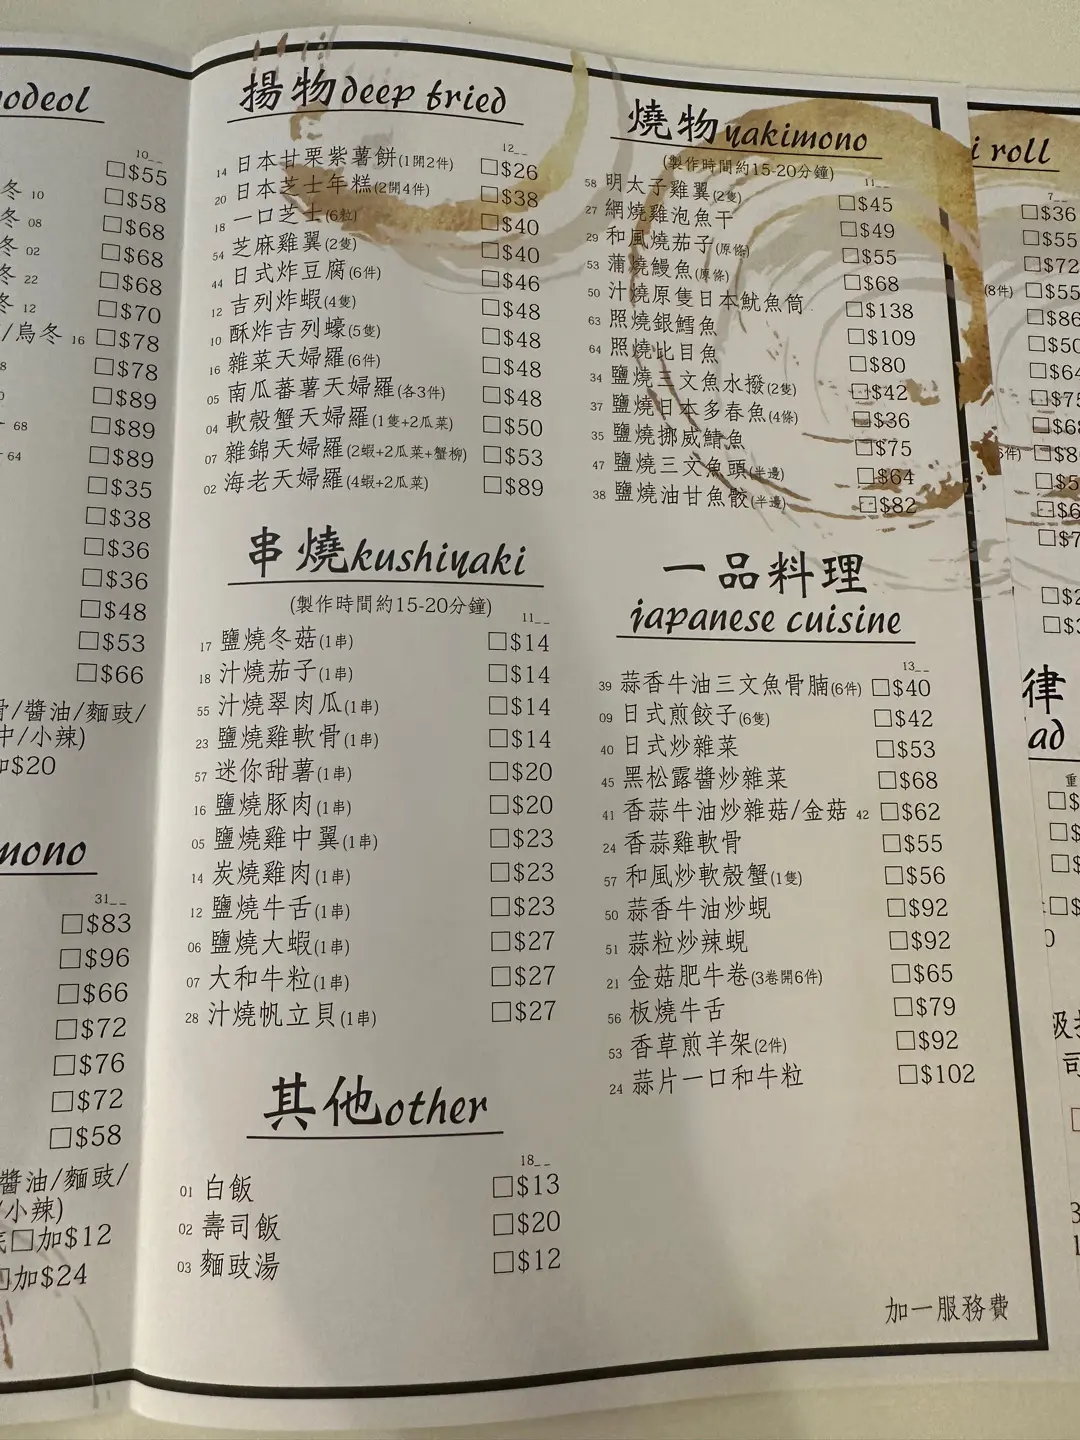 odeol
10_ _
□$55
□$58
冬 10 □$68
冬 08 □$68
冬 02 □$68
冬 22 □$70
冬 12 □$78
/烏冬 16 □$78
□$89
□$89
68 □$89
64 □$35
□$38
□$36
□$36
□$48
□$53
□$66
骨/醬油/麵豉/
中/小辣)
$20
mono
31_ _
□$83
□$96
□$66
□$72
□$76
□$72
□$58
醬油/麵豉/
/小辣)
底□加$12
□加$24
揚物deep fried
12_ _
14 日本甘栗紫薯餅(1開2件) □$26
20 日本芝士年糕(2開4件) □$38
18 一口芝士(6粒) □$40
54 芝麻雞翼(2隻) □$40
44 日式炸豆腐(6件) □$46
12 吉列炸蝦(4隻) □$48
10 酥炸吉列蠔(5隻) □$48
16 雜菜天婦羅(6件) □$48
05 南瓜蕃薯天婦羅(各3件) □$48
04 軟殼蟹天婦羅(1隻+2瓜菜) □$50
07 雜錦天婦羅(2蝦+2瓜菜+蟹柳) □$53
02 海老天婦羅(4蝦+2瓜菜) □$89
串燒kushiyaki
(製作時間約15-20分鐘)
11_ _
17 鹽燒冬菇(1串) □$14
18 汁燒茄子(1串) □$14
55 汁燒翠肉瓜(1串) □$14
23 鹽燒雞軟骨(1串) □$14
57 迷你甜薯(1串) □$20
16 鹽燒豚肉(1串) □$20
05 鹽燒雞中翼(1串) □$23
14 炭燒雞肉(1串) □$23
12 鹽燒牛舌(1串) □$23
06 鹽燒大蝦(1串) □$27
07 大和牛粒(1串) □$27
28 汁燒帆立貝(1串) □$27
其他other
18_ _
01 白飯 □$13
02 壽司飯 □$20
03 麵豉湯 □$12
燒物yakimono
(製作時間約15-20分鐘)
11_ _
58 明太子雞翼(2隻) □$45
27 網燒雞泡魚干 □$49
29 和風燒茄子(原條) □$55
53 蒲燒鰻魚(原條) □$68
50 汁燒原隻日本魷魚筒 □$138
63 照燒銀鱈魚 □$109
64 照燒比目魚 □$80
34 鹽燒三文魚水撥(2隻) □$42
37 鹽燒日本多春魚(4條) □$36
35 鹽燒挪威鯖魚 □$75
47 鹽燒三文魚頭(半邊) □$64
38 鹽燒油甘魚骹(半邊) □$82
一品料理
japanese cuisine
13_ _
39 蒜香牛油三文魚骨腩(6件) □$40
09 日式煎餃子(6隻) □$42
40 日式炒雜菜 □$53
45 黑松露醬炒雜菜 □$68
41 香蒜牛油炒雜菇/金菇 42 □$62
24 香蒜雞軟骨 □$55
57 和風炒軟殼蟹(1隻) □$56
50 蒜香牛油炒蜆 □$92
51 蒜粒炒辣蜆 □$92
21 金菇肥牛卷(3卷開6件) □$65
56 板燒牛舌 □$79
53 香草煎羊架(2件) □$92
24 蒜片一口和牛粒 □$102
加一服務費
i roll
7_ _
□$36
□$55
□$72
(8件) □$55
□$86
□$50
□$64
□$75
□$68
件) □$8
□$5
□$6
□$7
□$2
□$3
律
ad
重
□$
□$
□$
□$
司